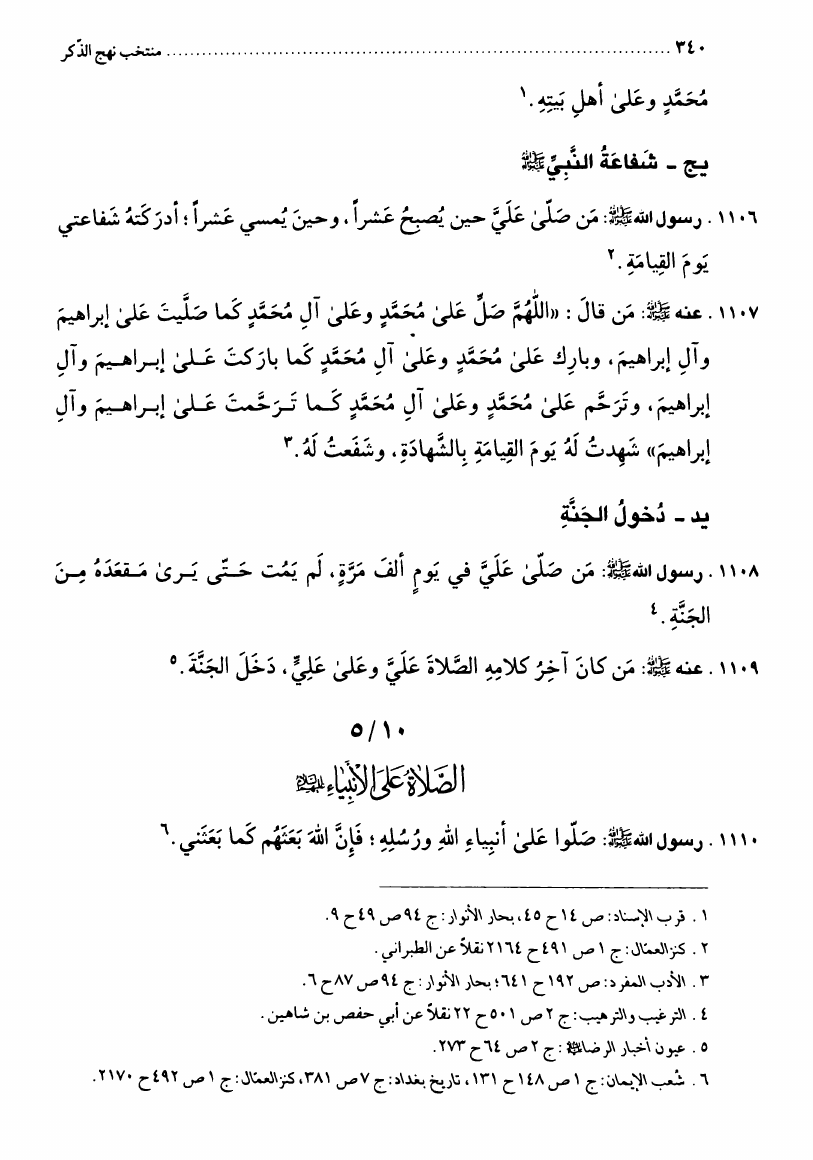 ٣٤٠ ........................................................................................ منتخب نهج الذّكر
مُحَمَّدٍ وعَلىٰ أهلِ بَيتِهِ.١
يج - شَفاعَةُ النَّبِيِّ ﷺ
١١٠٦. رسول الله ﷺ: مَن صَلّىٰ عَلَيَّ حين يُصبِحُ عَشراً، وحينَ يُمسي عَشراً؛ أدرَكَتهُ شَفاعتي
يَومَ القِيامَةِ.٢
١١٠٧. عنه ﷺ: مَن قالَ: «اللّٰهُمَّ صَلِّ عَلىٰ مُحَمَّدٍ وعَلىٰ آلِ مُحَمَّدٍ كَما صَلَّيتَ عَلىٰ إبراهيمَ
وآلِ إبراهيمَ، وبارِك عَلىٰ مُحَمَّدٍ وعَلىٰ آلِ مُحَمَّدٍ كَما بارَكتَ عَـلىٰ إبـراهـيمَ وآلِ
إبراهيمَ، وتَرَحَّم عَلىٰ مُحَمَّدٍ وعَلىٰ آلِ مُحَمَّدٍ كَـما تَـرَحَّمتَ عَـلىٰ إبـراهـيمَ وآلِ
إبراهيمَ» شَهِدتُ لَهُ يَومَ القِيامَةِ بِالشَّهادَةِ، وشَفَعتُ لَهُ.٣
يد - دُخولُ الجَنَّةِ
١١٠٨. رسول الله ﷺ: مَن صَلّىٰ عَلَيَّ في يَومٍ ألفَ مَرَّةٍ، لَم يَمُت حَـتّى يَـرىٰ مَـقعَدَهُ مِـنَ
الجَنَّةِ.٤
١١٠٩. عنه ﷺ: مَن كانَ آخِرُ كلامِهِ الصَّلاةَ عَلَيَّ وعَلىٰ عَلِيٍّ، دَخَلَ الجَنَّةَ.٥
٥/١٠
الصَّلاةُ عَلَى الأَنبِياءِ عليهم السلام
١١١٠. رسول الله ﷺ: صَلّوا عَلىٰ أنبِياءِ اللهِ ورُسُلِهِ؛ فَإِنَّ اللهَ بَعَثَهُم كَما بَعَثَني.٦
١. قرب الإسناد: ص ١٤ ح ٤٥، بحار الأنوار: ج ٩٤ ص ٤٩ ح ٩.
٢. كنز العمّال: ج ١ ص ٤٩١ ح ٢١٦٤ نقلاً عن الطبراني.
٣. الأدب المفرد: ص ١٩٢ ح ٦٤١؛ بحار الأنوار: ج ٩٤ ص ٨٧ ح ٦.
٤. الترغيب والترهيب: ج ٢ ص ٥٠١ ح ٢٢ نقلاً عن أبي حفص بن شاهين.
٥. عيون أخبار الرضا عليه السلام: ج ٢ ص ٦٤ ح ٢٧٣.
٦. شُعب الإيمان: ج ١ ص ١٤٨ ح ١٣١، تاريخ بغداد: ج ٧ ص ٣٨١، كنز العمّال: ج ١ ص ٤٩٢ ح ٢١٧٠.